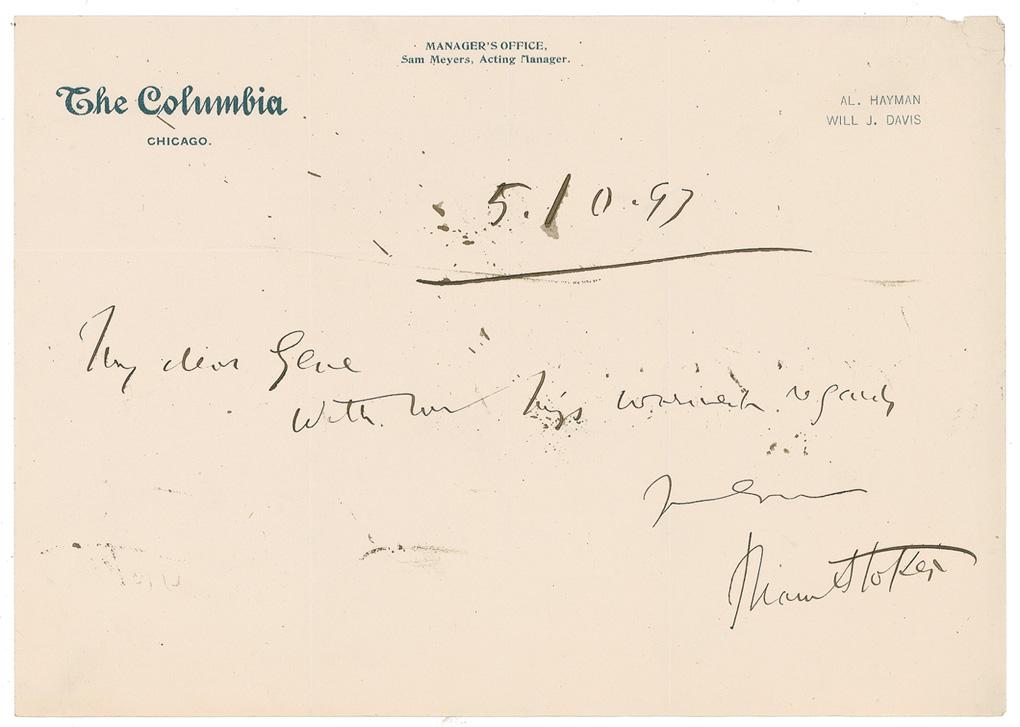 MANAGER'S OFFICE,
Sam Meyers, Acting Manager.
The Columbia
CHICAGO.
AL. HAYMAN
WILL J. DAVIS
5.10.97
My dear Gene
With warmest regards
Bram Stoker